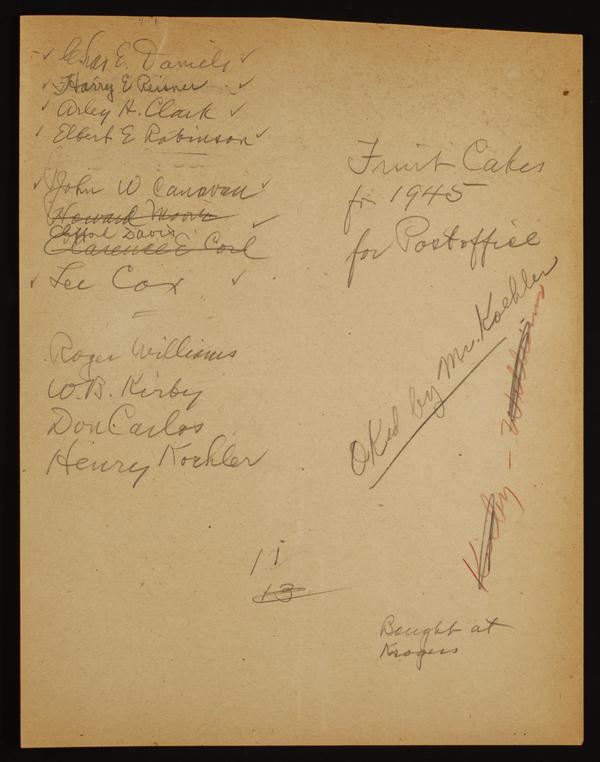 Chas E. Daniels
Harry E Reisner
Arley H. Clark
Elbert E Robinson
John W Canavan
Howard Moore
Clifford Davis
Clarence E Corl
Lee Cox
Roger Williams
W.B. Kirby
Don Carlos
Henry Koehler
Fruit Cakes
for 1945
for Postoffice
OKed by Mr. Koehler
Kirby - Williams
11
13
Bought at
Krogers